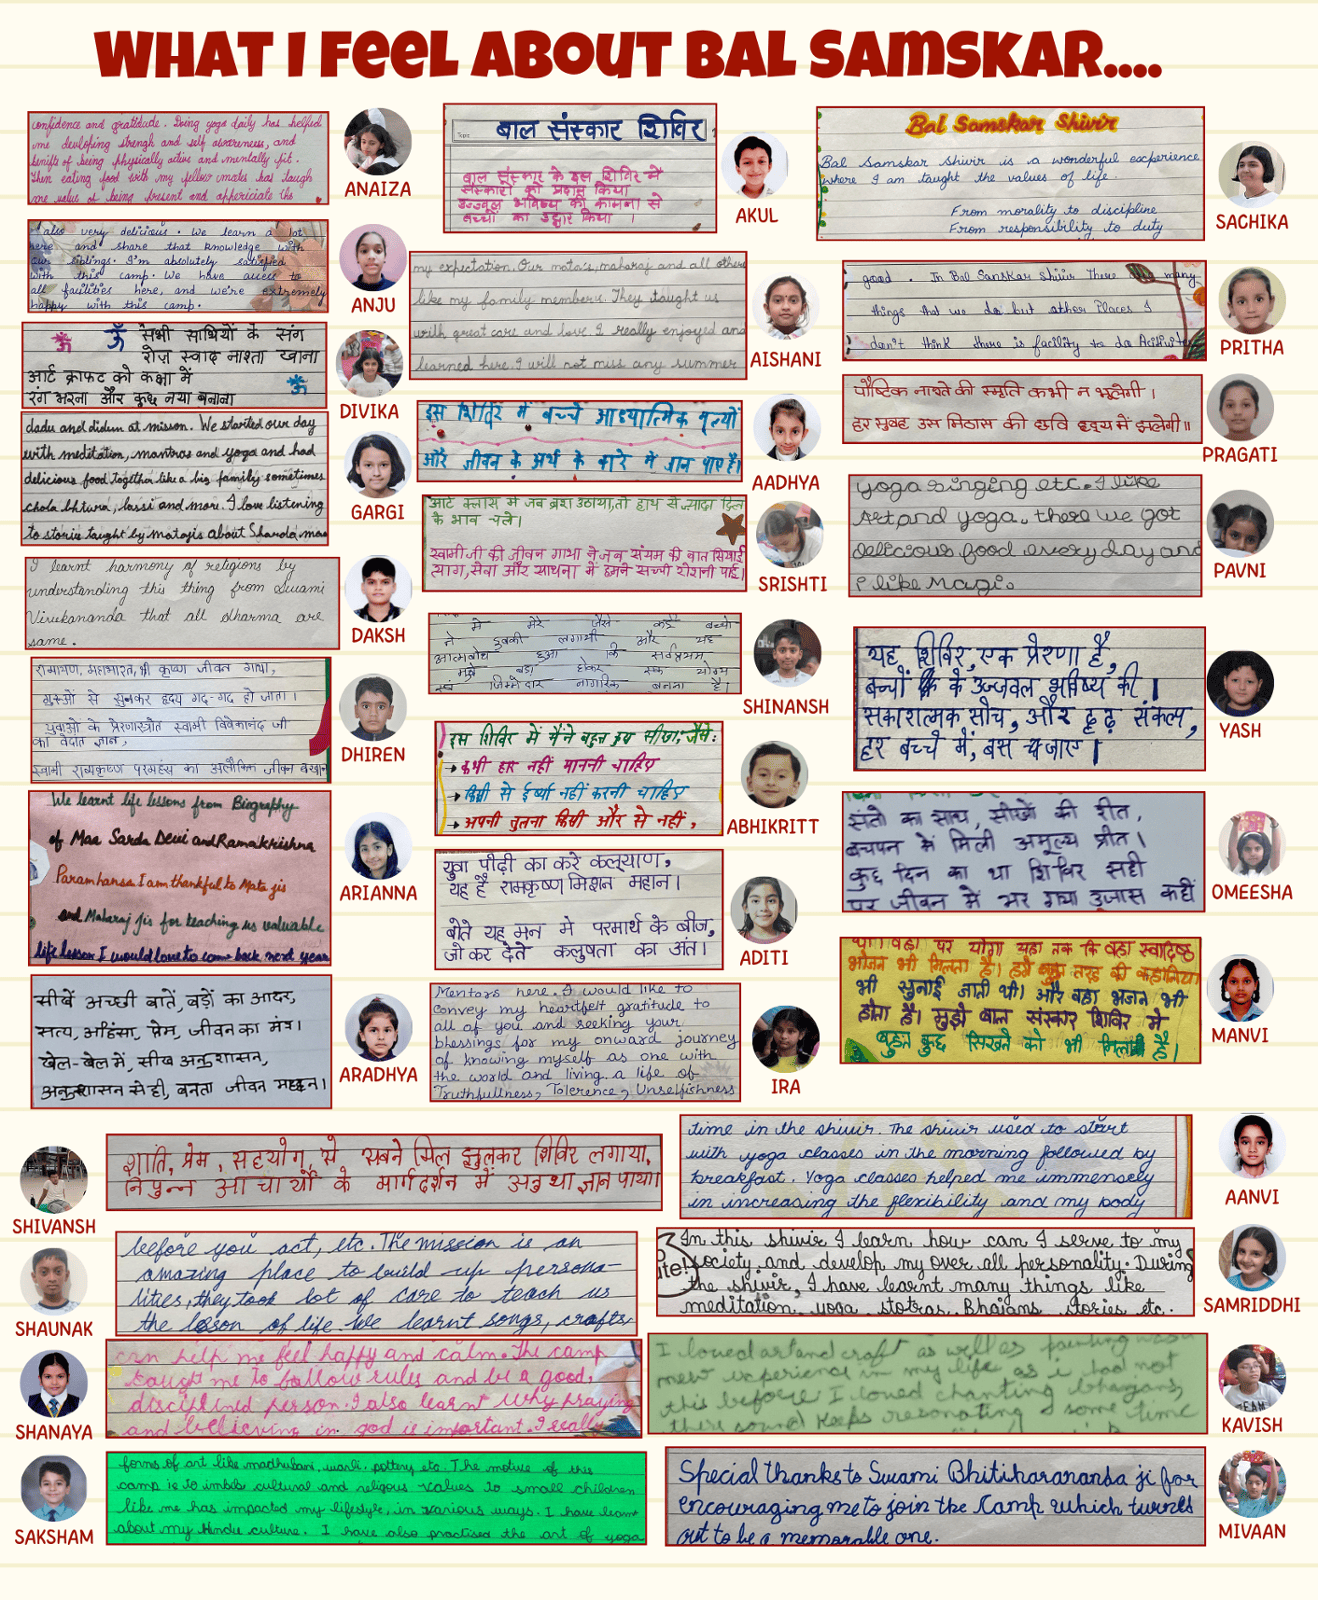 WHAT I FEEL ABOUT BAL SAMSKAR....
confidence and gratitude. Doing yoga daily has helped
me devloping strengh and self awareness, and
benifts of being physically active and mentally fit.
Then eating food with my fellow mates has taugh
me value of being present and appericiate the
ANAIZA
also very delicious. We learn a lot
here and share that knowledge with
our siblings. I'm absolutely satisfied
with this camp. We have access to
all facilities here, and we're extremely
happy with this camp.
ANJU
ॐ ॐ सभी साथियों के संग
रोज़ स्वाद नाश्ता खाना
आर्ट क्राफट को कक्षा में
रंग भरना और कुछ नया बनाना
ॐ
DIVIKA
dadu and didun at mission. We started our day
with meditation, mantras and yoga and had
delicious food together like a big family sometimes
chola bhtura, lassi and more. I love listening
to stories taught by matajis about Sharda maa
GARGI
I learnt harmony of religions by
understanding this thing from Swami
Vivekananda that all dharma are
same.
DAKSH
रामायण, महाभारत, श्री कृष्ण जीवन गाथा,
गुरुओं से सुनकर हृदय गद-गद हो जाता।
युवाओ के प्रेरणास्त्रोत स्वामी विवेकानंद जी
का वेदांत ज्ञान,
स्वामी रामकृष्ण परमहंस का अलौकिक जीवन बखान
DHIREN
We learnt life lessons from Biography
of Maa Sarda Devi and Ramakrishna
Paramhansa I am thankful to Mata jis
and Maharaj jis for teaching us valuable
life lesson I would love to come back next year
ARIANNA
सीखें अच्छी बातें, बड़ों का आदर,
सत्य, अहिंसा, प्रेम, जीवन का मंत्र।
खेल-खेल में, सीख अनुशासन,
अनुशासन से ही, बनता जीवन महान।
ARADHYA
बाल संस्कार शिविर
बाल संस्कार के इस शिविर में
संस्कारों को प्रदान किया
उज्ज्वल भविष्य की कामना से
बच्चों का उद्धार किया ।
AKUL
my expectation. Our mata's, maharaj and all others
like my family members. They taught us
with great care and love I really enjoyed and
learned here I will not miss any summer
AISHANI
इस शिविर में बच्चे आध्यात्मिक मूल्यों
और जीवन के अर्थ के बारे में जान पाए है।
AADHYA
आर्ट क्लास में जब ब्रश उठाया, तो हाथ से ज़्यादा दिल
के भाव चले।
स्वामी जी की जीवन गाथा ने जब संयम की बात सिखाई
त्याग, सेवा और साधना में हमने सच्ची रोशनी पाई।
SRISHTI
में मेरे जैसे कई बच्चो
ने डुबकी लगायी और यह
आत्मबोध हुआ कि सर्वप्रथम
मुझे बड़ा होकर एक योग्य
एवं जिम्मेदार नागरिक बनना है।
SHINANSH
इस शिविर में मैंने बहुत कुछ सीखा, जैसे:
→ कभी हार नहीं माननी चाहिए
→ किसी से ईर्ष्या नहीं करनी चाहिए
→ अपनी तुलना किसी और से नहीं,
ABHIKRITT
युवा पीढ़ी का करे कल्याण,
यह है रामकृष्ण मिशन महान।
बोते यह मन मे परमार्थ के बीज,
जो कर देते कलुषता का अंत।
ADITI
Mentors here. I would like to
convey my heartfelt gratitude to
all of you and seeking your
blessings for my onward journey
of knowing myself as one with
the world and living a life of
Truthfullness, Tolerence, Unselfishness
IRA
Bal Samskar Shivir
Bal Samskar Shivir is a wonderful experience
where I am taught the values of life.
From morality to discipline
From responsibility to duty
SACHIKA
good. In Bal Sanskar Shivir There are many
things that we do but other Places I
don't think there is facility to do Activities
PRITHA
पौष्टिक नाश्ते की स्मृति कभी न भूलेगी ।
हर सुबह उस मिठास की छवि हृदय में झलेगी॥
PRAGATI
yoga singing etc. I like
Art and yoga. there we got
delicious food every day and
I like Magi.
PAVNI
यह शिविर, एक प्रेरणा है,
बच्चों के उज्जवल भविष्य की।
सकारात्मक सोच, और दृढ़ संकल्प,
हर बच्चे में, बस जाए।
YASH
संतो का साथ, सीखों की रीत,
बचपन में मिली अमूल्य प्रीत।
कुछ दिन का था शिविर सही
पर जीवन में भर गया उजास कहीं
OMEESHA
पर योगा यहा तक कि वहा स्वादिष्ठ
भोजन भी मिलता है। हमें बहुत तरह की कहानिया
भी सुनाई जाती थी। और वहा भजन भी
होता है। मुझे बाल संस्कार शिविर मे
बहुत कुछ सिखने को भी मिलता है।
MANVI
शांति, प्रेम, सहयोग से सबने मिल जुलकर शिविर लगाया,
निपुन्न आचार्यों के मार्गदर्शन में अनुथा ज्ञान पाया।
SHIVANSH
time in the shivir. The shivir used to start
with yoga classes in the morning followed by
breakfast. Yoga classes helped me immensely
in increasing the flexibility and my body
AANVI
before you act, etc. The mission is an
amazing place to build up persona-
lities, they took lot of care to teach us
the lesson of life. We learnt songs, crafts,
SHAUNAK
In this shivir I learn how can I serve to my
society and develop my over all personality. During
the shivir, I have learnt many things like
meditation, yoga stotras, Bhajans stories etc.
SAMRIDDHI
can help me feel happy and calm. The camp
taught me to follow rules and be a good,
disciplined person. I also learnt why praying
and believing in god is important. I really
SHANAYA
I loved art and craft as well as painting was a
new experience in my life as i had not
this before I loved chanting bhajans,
there sound keeps resonating I some time
KAVISH
forms of art like madhubani, warli, pottery etc. The motive of this
camp is to imbibe cultural and religous values to small children
like me has impacted my lifestyle, in various ways. I have learnt
about my Hindu culture. I have also practised the art of yoga
SAKSHAM
Special thanks to Swami Bhitiharananda ji for
encouraging me to join the Camp which turned
out to be a memorable one.
MIVAAN